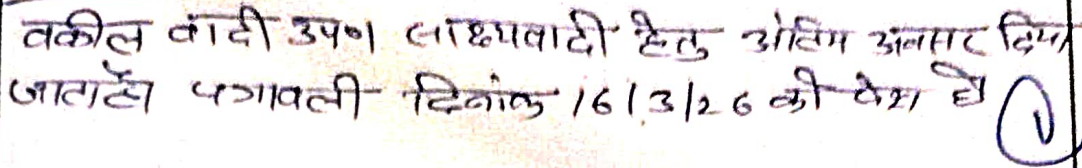 वकील वादी उप० साक्ष्यवादी हेतु अंतिम अवसर दिया
जाता है पत्रावली दिनांक 16/3/26 को पेश हो